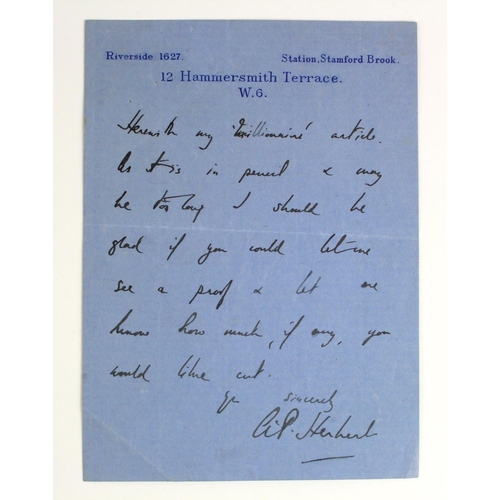 Riverside 1627. Station, Stamford Brook.
12 Hammersmith Terrace.
W.6.
Herewith my 'Millionaire' article.
As it is in pencil & may
be too long I should be
glad if you could let me
see a proof & let me
know how much, if any, you
would like cut.
Yrs sincerely
A.P. Herbert